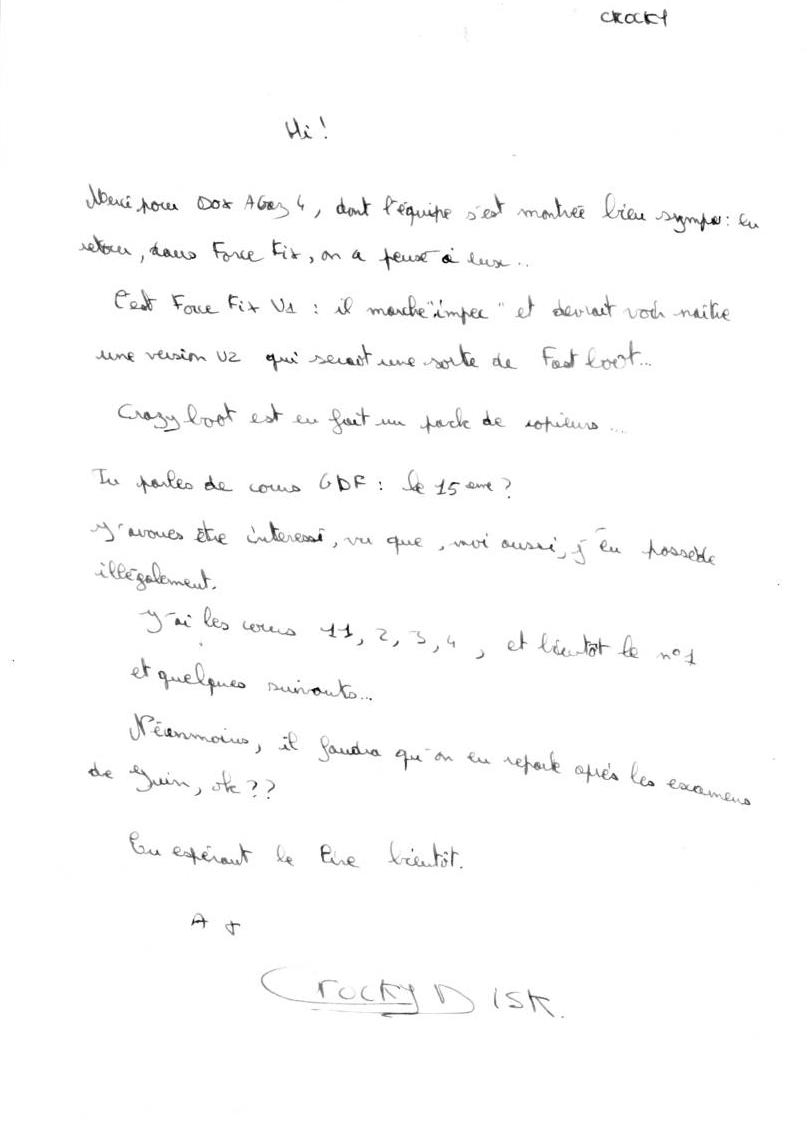 CROCKY
Hi !
Merci pour Dox A Gogo 4, dont l'équipe s'est montrée bien sympa : en
retour, dans Force Fix, on a pensé à eux..
C'est Force Fix V1 : il marche "impec" et devrait voir naître
une version V2 qui serait une sorte de Fast boot...
Crazy boot est en fait un pack de copieurs ...
Tu parles de cours GDF : le 15 eme ?
J'avoues être interessé, vu que, moi aussi, j'en possède
illégalement.
J'ai les cours 11, 2, 3, 4, et bientôt le n°1
et quelques suivants...
Néanmoins, il faudra qu'on en reparle après les examens
de Juin, ok ??
En espérant te lire bientôt.
A +
CROCKY DISK.